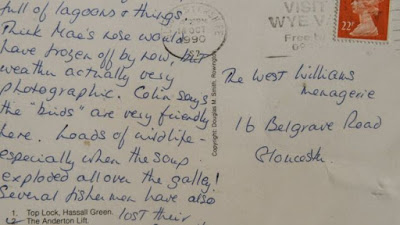 full of lagoons & things.
Think Mae's nose would
have frozen off by now, but
weather actually very
photographic. Colin says
the "birds" are very friendly
here. Loads of wildlife -
especially when the soup
exploded all over the galley!
Several fishermen have also
lost their
1. Top Lock, Hassall Green.
2. The Anderton Lift.
Copyright: Douglas M. Smith,
OCT
1990
VISIT
WYE V
22P
The West Williams
Menagerie
16 Belgrave Road
Gloucester.